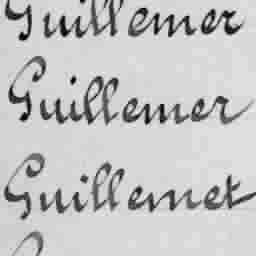 Guillemer
Guillemer
Guillemet